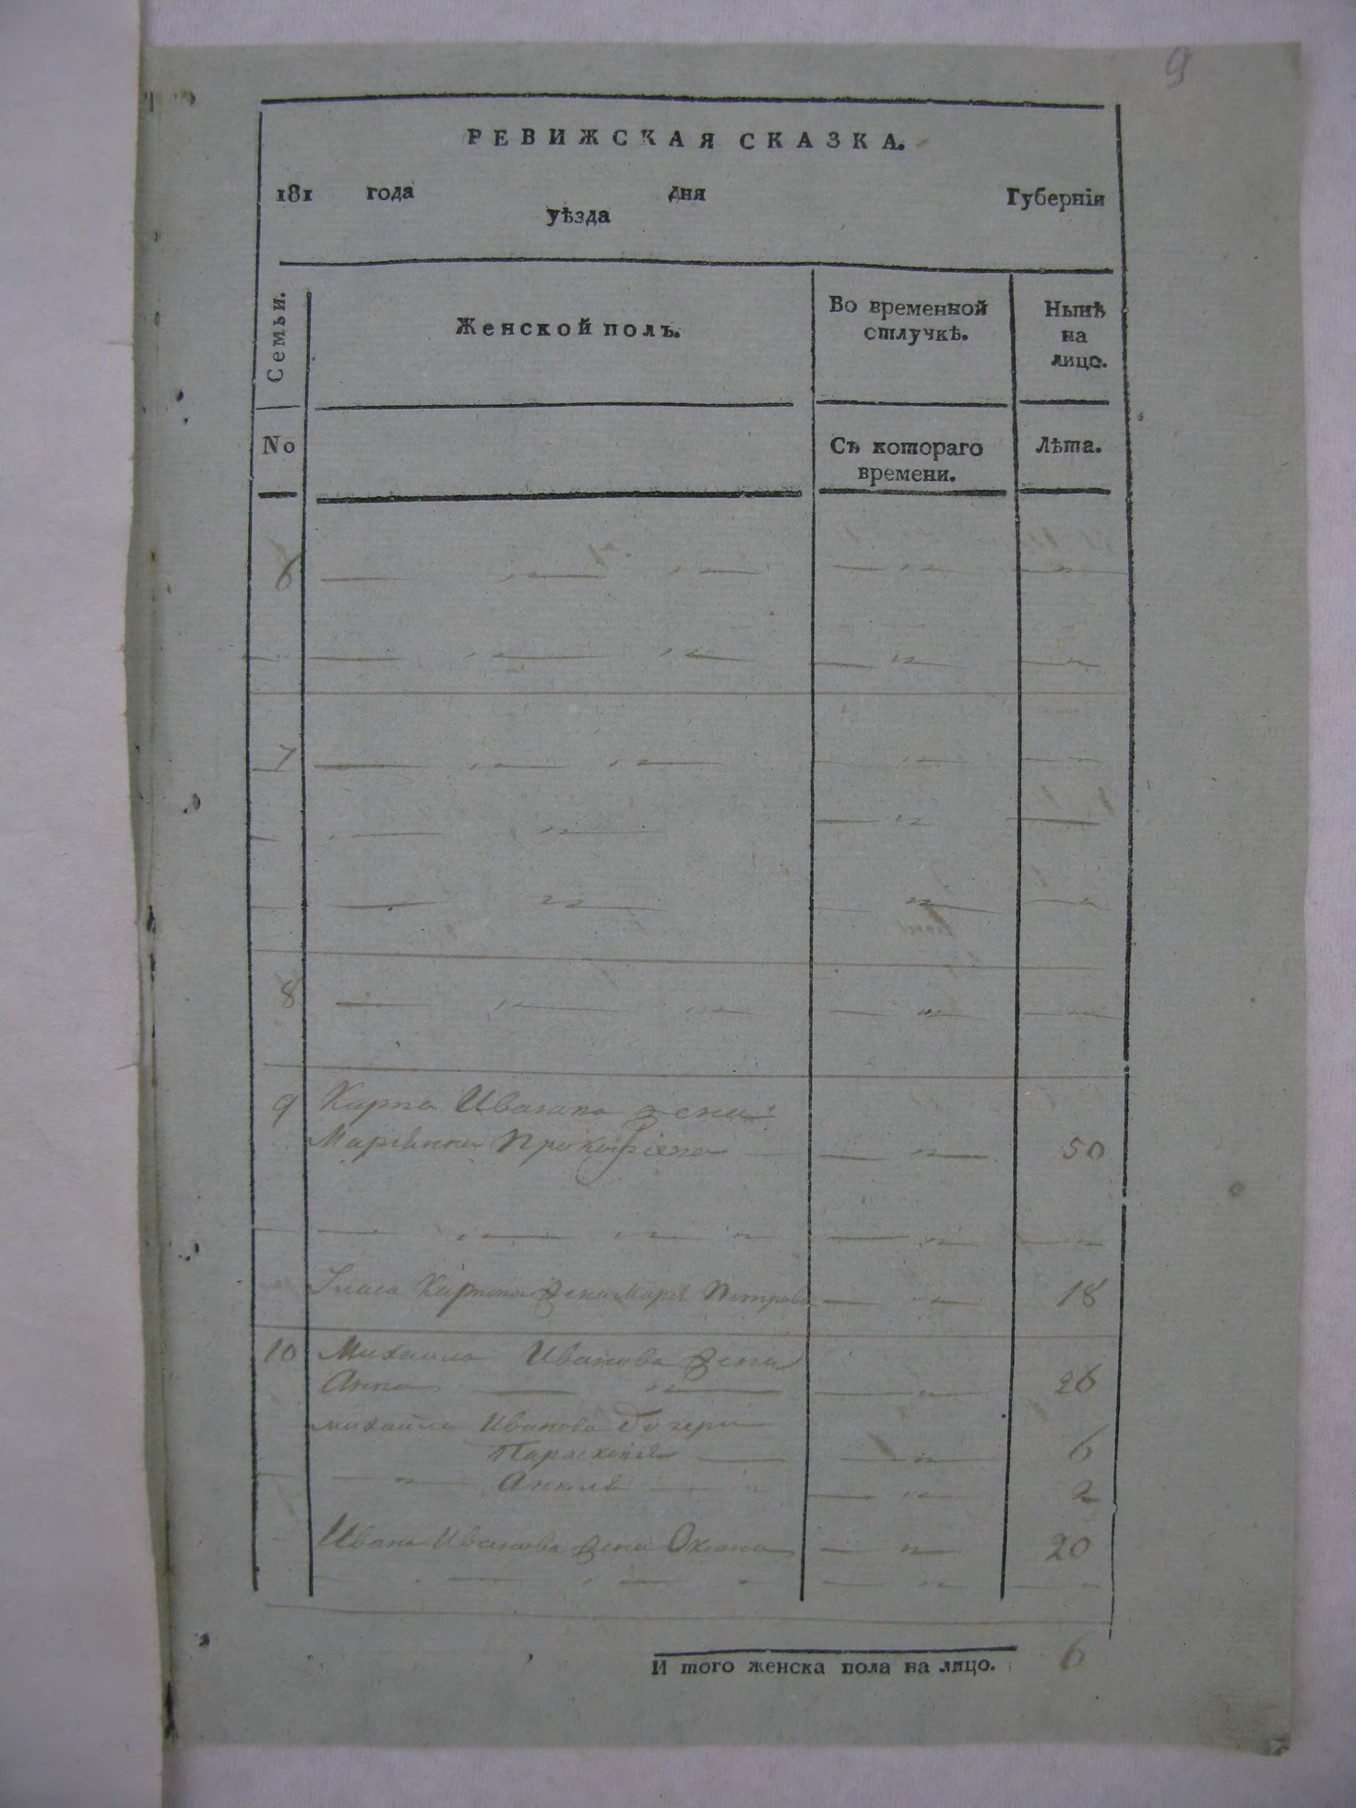 9
РЕВИЖСКАЯ СКАЗКА.
181 года дня Губерніи
уѣзда
Семьи.
Женской полъ.
Во временной отлучкѣ.
Нынѣ на лицо.
No
Съ котораго времени.
Лѣта.
6
7
8
9 Карпа Иванова жена
Марьяна Прокофіева 50
Карпова жена Марья Петрова 18
10 Михайла Иванова жена
Анна 26
Михайла Иванова дочери
Параскевія 6
2
Ивана Иванова жена Оксана 20
И того женска пола на лицо. 6